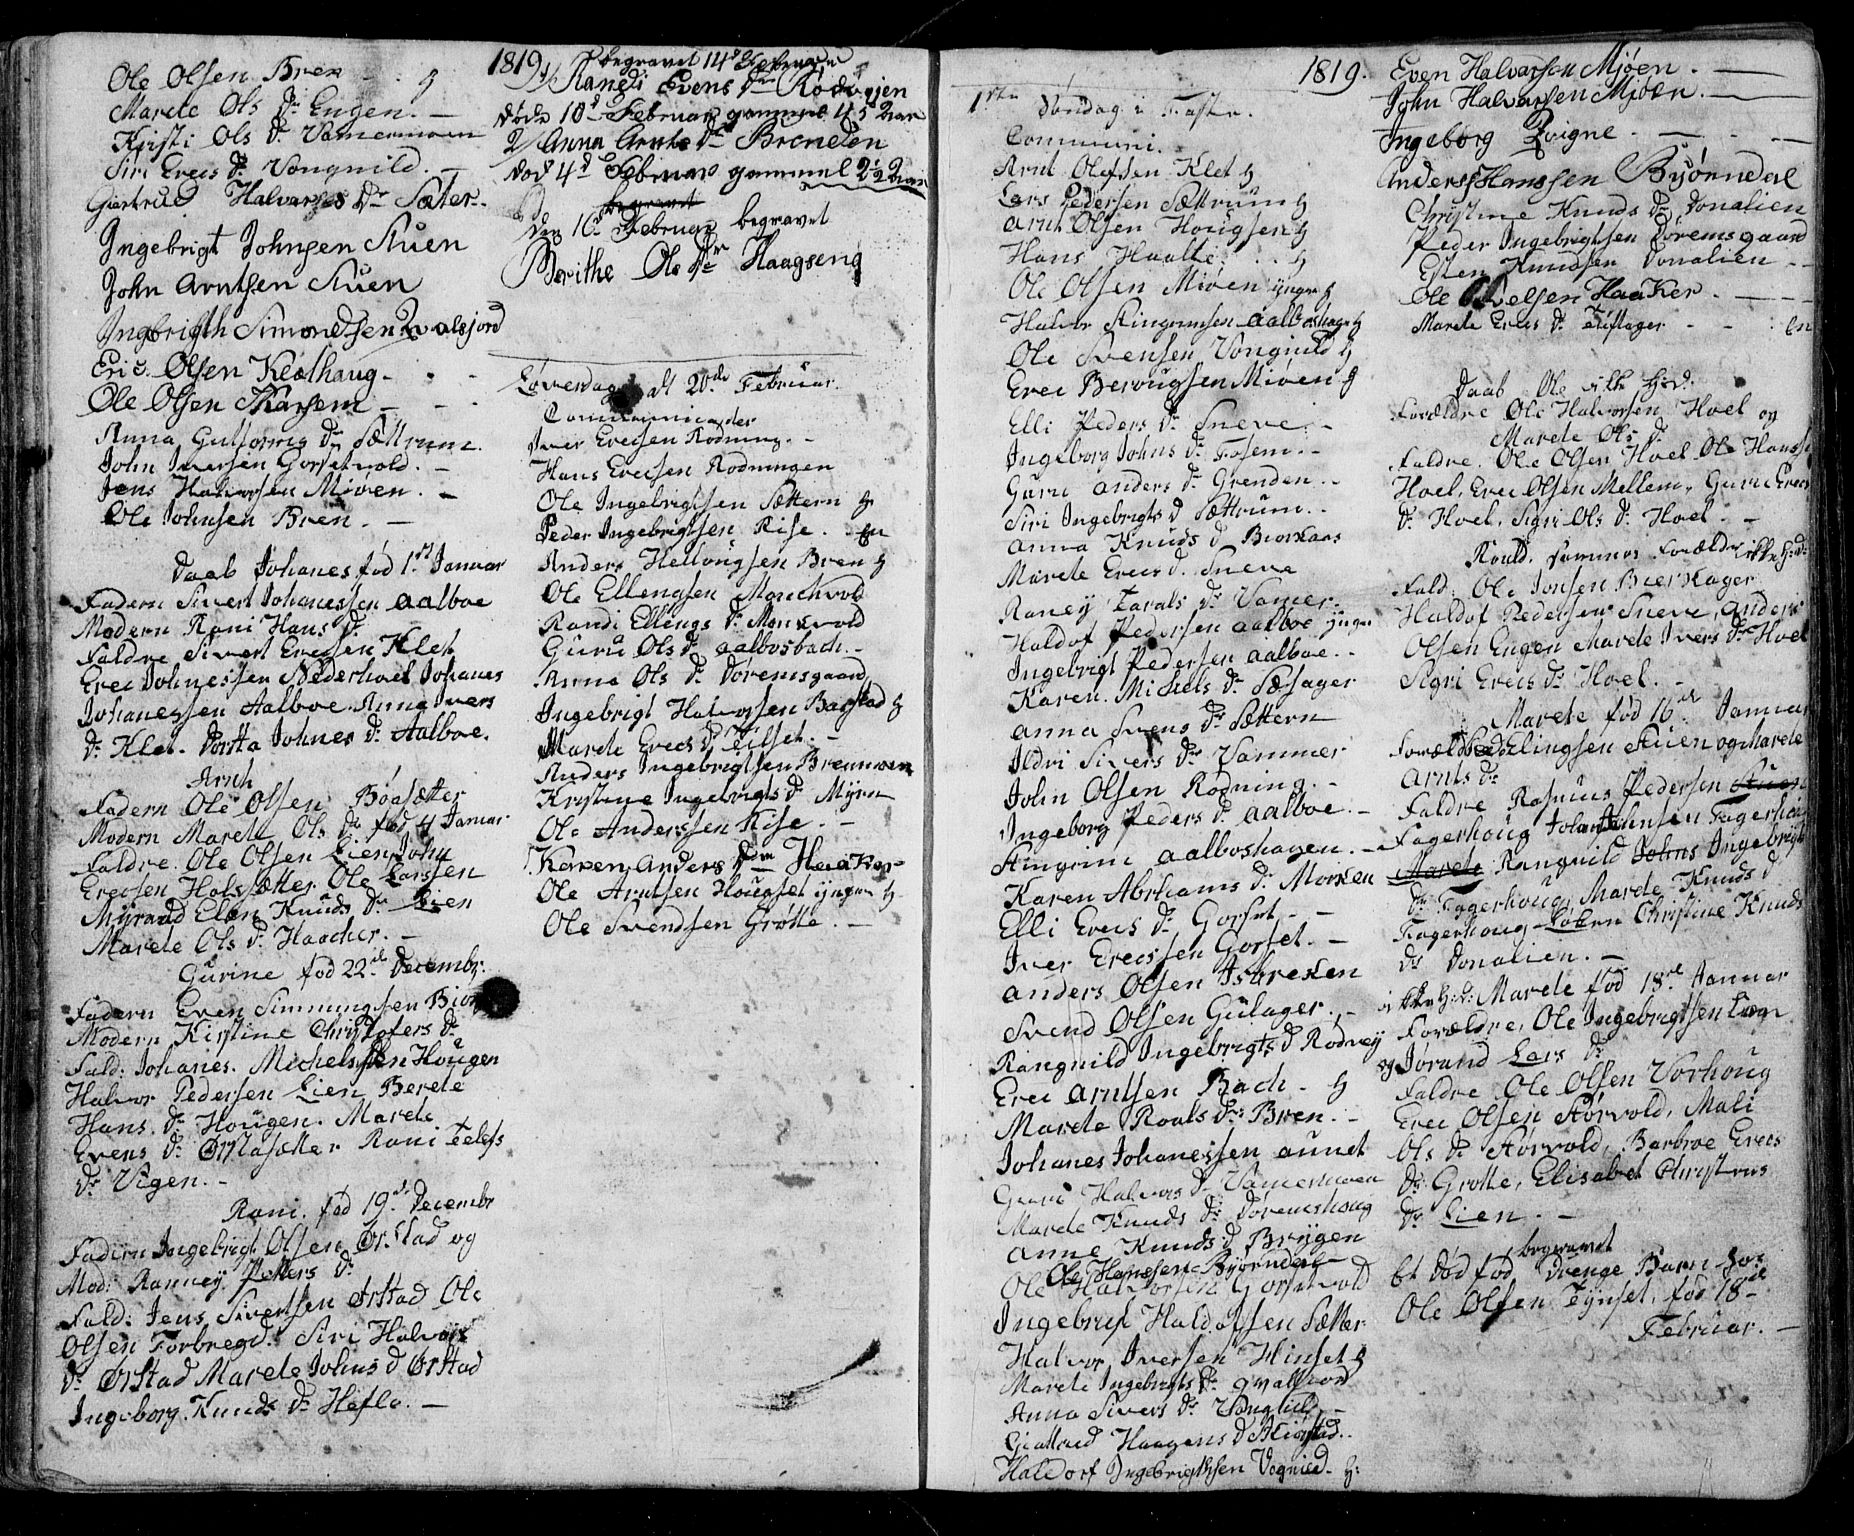 Ole Olsen Bren - . . H
Marete Ols Dr Engen. -
Kjrsti Ols Dr Vamermoen
Siri Erecs Dr Vongnild. -
Giertrud Halvarses Dr Sæter.
Ingebrigt Johnsen Stuen
John Arntsen Stuen
Ingbrigth Simondsen Qvalsjord
Eric Olsen Kealhaug - . -
Ole Olsen Skarsem - -
Anna Guttormg Dr Sættrum.
John Iversen Gorsetvold. -
Jens Halvorsen Miøen. -
Ole Johnsen Bren. -
Daab Johanes fød 1st Januar
Fadern Sivert Johanessen Aalboe
Modern Rani Hans Dr
Faldre Sivert Erecsen Klet
Erec Johnessen Nederhoel Johanes
Johanessen Aalboe. Anna Ivers
Dr Klet. Dortta Johnes Dr Aalboe.
Arnt
Fadern Ole Olsen Böasætter
Modern Marete Ols Dr fød 4 Januar
Faldre. Ole Olsen Lien John
Erecsen Holssætter. Ole Larssen
Myraad Elen Knuds Dr Lien
Marete Ols Dr Haacher. -
Gurine fød 22de Decembr.
Fadern Even Simmungsen
Modern Kirstine Christofers Dr
Fald: Johanes. Michelssen Hougen
Halvor Pedersen Lien Berete
Hans Dr Hougen. Marete
Evens Dr Ørstasætter Rani Telefs
Dr Vigen. -
Rani. fød 19de Decembr
Fadern Ingebrigt Olsen Ørstad og
Mod: Ranney Petters Dr
Fald: Jens Sivertsen Ørstad Ole
Olsen Forbregd. Siri Halvors
Dr Ørstad Marete Johns D Ørstad
Ingeborg Knuds Dr Hefle. -
1819. begravet 14d Februar
1/ Rangdi Evens Dr Rodvojen
døde 10d Februar gammel 45 Aar
2/ Anna Arnts Dr Brendten
død 4d Februar gammel 2½ Aar
begravet
Den 16 Februar begravet
Berithe Ole Dr Haagseng
Løverdag d 20de Februar.
Communicanter
Iver Erecsen Rodning. -
Hans Erecsen Rodningen
Ole Ingebrigtsen Sættern H
Peder Ingebrigtsen Rise. En
Anders Hellougsen Bren H
Ole Ellengsen Monchvold
Randi Ellengs Dr Monkvold
Guru Ols Dr Aalbosbach. -
Anna Ols Dr Døremsgaard
Ingebrigt Halvorsen Barstad H
Marete Erecs D Tilset. -
Anders Ingebrigtsen Brennmoen
Kristine Ingebrigts Dr Myrn
Ole Anderssen Rise. -
Karen Anders Dtr Haaker
Ole Arntsen Hougset yngre H
Ole Svendsen Grøtte. -
1819.
1ste Søndag i Faste.
Communi.
Arnt Olefsen Klet H
Lars Pedersen Sættrum H
Arnt Olsen Hougsen H
Hans Haalte . . . H
Ole Olsen Miøen yngre H
Halvor Stingrimsen Aalboshage H
Ole Svensen Vongnild H
Erec Berougsen Miøen H
Elli Peders Dr Sneve. -
Ingeborg Johns Dr Fosem. -
Guru Anders Dr Grenden. -
Siri Ingebrigts D Sættrum. .
Anna Knuds D Biorkaas
Marete Erecs D. Sneve
Raney Tarals Dr Vamer.
Haldof Pedersen Aalboe yngre
Ingebrigt Pedersen Aalboe. .
Karen. Michels Dr Sæsager
Anna Svens Dr Sættern
Ildri Sivers Dr Vammer
John Olsen Rodning. -
Ingeborg Peders Dr Aalboe. -
Stingrim Aalboshagen. -
Karen Abrhams Dr Morken
Elli Erecs Dr Gorset. -
Iver Erecssen Gorset. -
Anders Olsen Isbreken
Svend Olsen Gulager. -
Rangnild Ingebrigts D Rodvey
Erec Arntsen Bach. H
Marete Roals Dr Bren. -
Johanes Johanessen Aunet
Guri Halvors Dr Vamermoen
Marete Knuds Dr Døremshoug
Anne Knuds D Brygen
Ole Hanssen Byørndal
Ole Halvorsen Gorsetvold
Ingebrigt Haldofsen Sætter
Halvor Iversen Hinset H
Marete Ingebrigts Dr Qvalfiord
Anna Sivers Dr Vongnild -
Giertrud Haagens D
Haldorf Ingebrigthsen Vognild. H:
Even Halvarsen Mjøen. -
John Halvarsen Mjøen. -
Ingeborg Qvigne. -
Anders Hanssen Byørndal
Christine Knuds Dr Donalien
Peder Ingebrigtsen Doremsgaard
Esten Knudsen Donalien -
Ole Evelsen Haaker. -
Marete Erecs Dr Fliflager - - : En
Daab Ole ikke Hd:
Forældre Ole Halvorsen Hoel og
Marete Ols Dr
Faldre. Ole Olsen Hoel Ole Hanss
Hoel, Erec Olsen Mellem, Guru Erecs
Dr Hoel, Sigri Ols Dr Hoel. -
Roald. sammes Forældre ikke H:d:
Fald: Ole Jonsen Bierkager
Haldof Pedersen Sneve, Anders
Olsen Engen Marete Ivers Dr Hoel
Sigri Erecs Dr Hoel. -
Marete fød 16de Januar
Forældre Elingsen Stuen og Marete
Arnts Dr
Faldre Rasmus Pedersen Stuen
Fagerhoug John Johnsen Fagerhoug
Marete Rangnild Johns Ingebrigts
Dr Fagerhoug, Marete Knuds D
Fagerhoug Løkern Christine Knuds
Dr Donalien. -
ikke H:d: Marete fød 18de Januar
Forældre, Ole Ingebrigtsen
og Jorand Lars Dr
Faldre Ole Olsen Vorhoug
Erec Olsen Størvold, Mali
Ols Dr Størvold, Barbroe Erecs
Dr Grotte, Elisabet Christens
Dr Lien. -
begravet
Et død fød Drenge Barn for
Ole Olsen Tynset. fød 18de
Februar. -